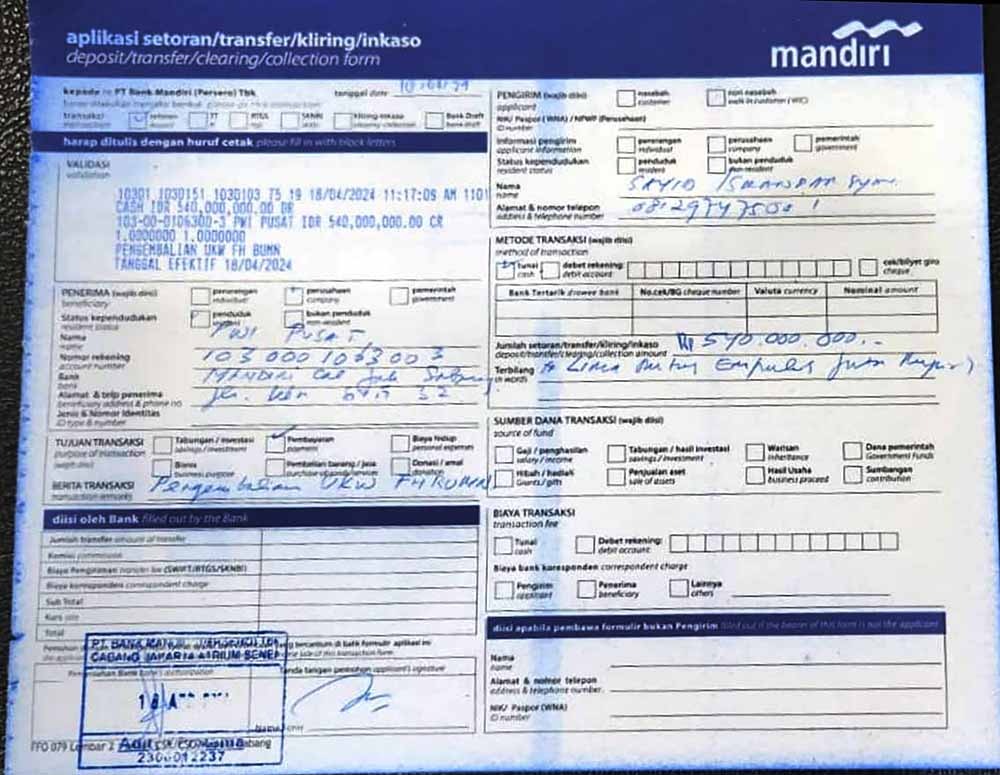 aplikasi setoran/transfer/kliring/inkaso
deposit/transfer/clearing/collection form
mandiri
kepada to PT Bank Mandiri (Persero) Tbk
tanggal date
transaksi
RTGS
SKNBI
kliring-inkaso
Bank Draft
bank draft
harap ditulis dengan huruf cetak please fill in with block letters
VALIDASI
validation
10301 1030151 1030103 T5 19 18/04/2024 11:17:09 AM 1101
CASH IDR 540,000,000.00 DR
103-00-0106300-3 PWI PUSAT IDR 540,000,000.00 CR
1.0000000 1.0000000
PENGEMBALIAN UKW FH BUMN
TANGGAL EFEKTIF 18/04/2024
PENERIMA (wajib diisi)
beneficiary
perorangan
individual
perusahaan
company
pemerintah
government
Status kependudukan
resident status
penduduk
resident
bukan penduduk
non-resident
Nama
name
PWI PUSAT
Nomor rekening
account number
103 000 1063003
Bank
bank
MANDIRI
Alamat & telp penerima
beneficiary address & phone no.
Jenis & Nomor Identitas
ID type & number
TUJUAN TRANSAKSI
purpose of transaction
(wajib diisi)
Tabungan / investasi
savings/investment
Pembayaran
payment
Biaya hidup
personal expenses
Bisnis
business purpose
Pembelian barang / jasa
purchase of goods/services
Donasi / amal
donation
BERITA TRANSAKSI
transaction remarks
Pengembalian UKW FH BUMN
diisi oleh Bank filled out by the Bank
Jumlah transfer amount of transfer
Komisi commission
Biaya Pengiriman transfer fee (SWIFT/RTGS/SKNBI)
Biaya koresponden correspondent charge
Sub Total
Kurs rate
Total
tercantum di balik formulir aplikasi ini
side of this transaction form.
Tanda tangan pemohon applicant's signature
CABANG JAKARTA ATRIUM SENEN
2300012237
FFO 079 Lembar 2
PENGIRIM (wajib diisi)
applicant
nasabah
customer
non nasabah
walk in customer (WIC)
NIK/ Paspor (WNA) / NPWP (Perusahaan)
ID number
Informasi pengirim
applicant information
perorangan
individual
perusahaan
company
pemerintah
government
Status kependudukan
resident status
penduduk
resident
bukan penduduk
non-resident
Nama
name
SAYID ISKANDAR
Alamat & nomor telepon
address & telephone number
METODE TRANSAKSI (wajib diisi)
method of transaction
Tunai
cash
debet rekening:
debit account
cek/bilyet giro
cheque
Bank Tertarik drawee bank
No.cek/BG cheque number
Valuta currency
Nominal amount
Jumlah setoran/transfer/kliring/inkaso
deposit/transfer/clearing/collection amount
Rp 540.000.000.-
Terbilang
in words
Lima Ratus Empuluh Juta Rupiah)
SUMBER DANA TRANSAKSI (wajib diisi)
source of fund
Gaji / penghasilan
salary/income
Tabungan / hasil investasi
savings/investment
Warisan
inheritance
Dana pemerintah
Government Funds
Hibah / hadiah
Grants/gifts
Penjualan aset
sale of assets
Hasil Usaha
business proceed
Sumbangan
contribution
BIAYA TRANSAKSI
transaction fee
Tunai
cash
Debet rekening:
debit account
Biaya bank koresponden correspondent charge
Pengirim
applicant
Penerima
beneficiary
Lainnya
others
diisi apabila pembawa formulir bukan Pengirim filled out if the bearer of this form is not the applicant
Nama
name
Alamat & nomor telepon
address & telephone number
NIK/ Paspor (WNA)
ID number